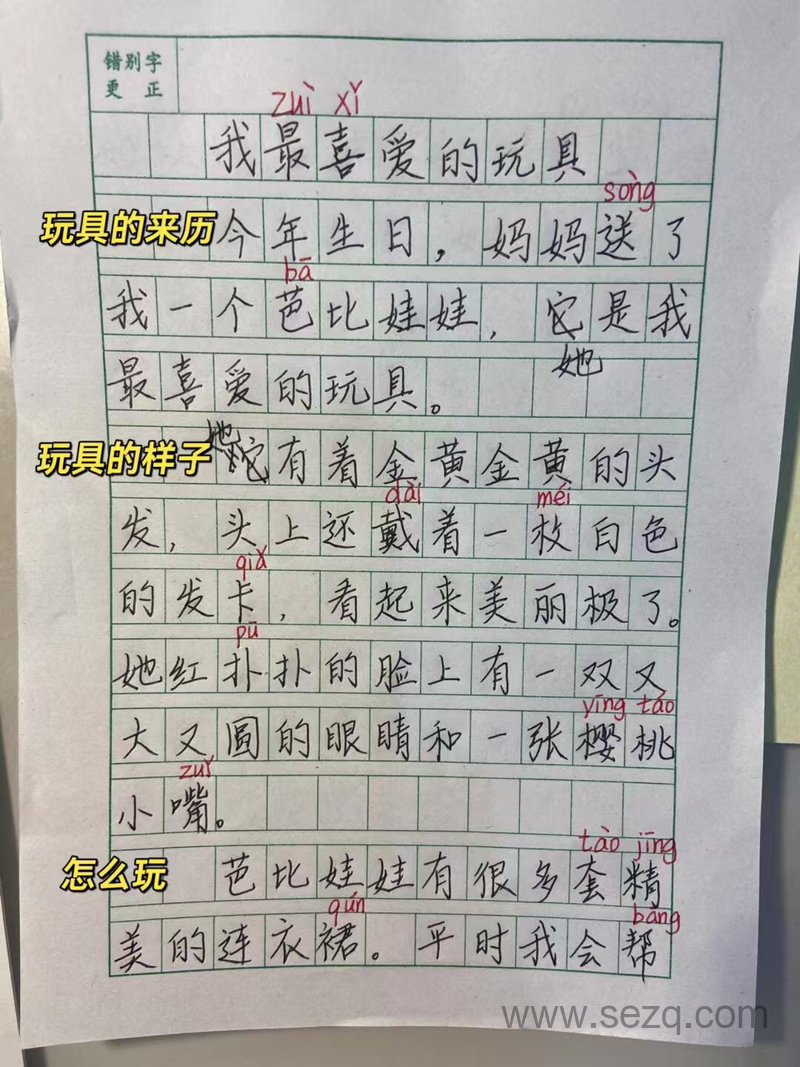 错别字
更 正
zuì xǐ
我最喜爱的玩具
sòng
玩具的来历
今年生日，妈妈送了
bā
我一个芭比娃娃，它是我
她
最喜爱的玩具。
她
玩具的样子
它有着金黄金黄的头
dài méi
发，头上还戴着一枚白色
qiǎ
的发卡，看起来美丽极了。
pū
她红扑扑的脸上有一双又
yīng táo
大又圆的眼睛和一张樱桃
zuǐ
小嘴。
tào jīng
怎么玩
芭比娃娃有很多套精
qún bāng
美的连衣裙。平时我会帮
www.sezq.com